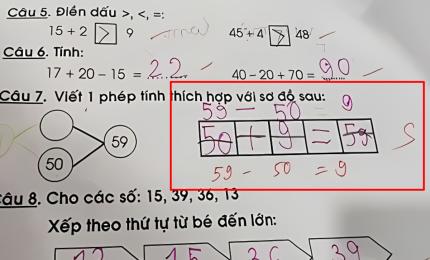 Câu 5. Điền dấu >, <, =:
15 + 2 > 9    45 + 4 > 48
Câu 6. Tính:
17 + 20 – 15 = 22    40 – 20 + 70 = 90
Câu 7. Viết 1 phép tính thích hợp với sơ đồ sau:
59 – 50 9
50 + 9 = 59
59
50
59 – 50 = 9
S
Câu 8. Cho các số: 15, 39, 36, 13
Xếp theo thứ tự từ bé đến lớn:
15 36 39